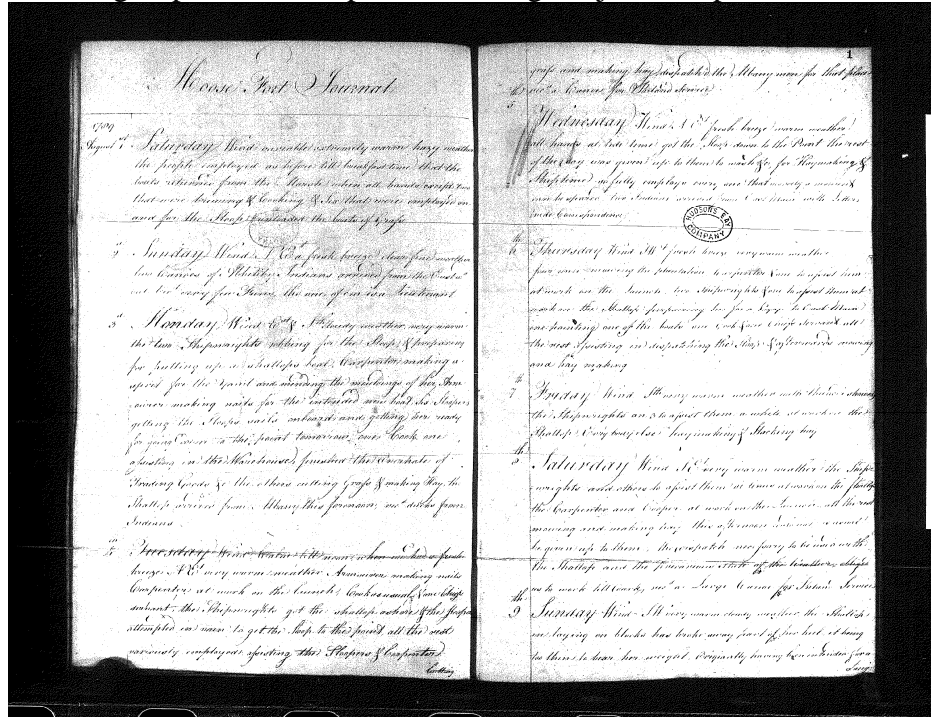 Moose Fort Journal
1789
August 1st Saturday Wind variable extremely warm hazy weather
the people employed as before till breakfast time that the
boats returned from the Marsh when all hands except two
that were brewing & Cooking & Six that were employed on
and for the Sloop unloaded the boats of Grass
2 Sunday Wind N Et a fresh breeze fine weather
two Canoes of Indians arrived from the
very few Furs, the one of em is a Lieutenant
3d Monday Wind Et & Nth cloudy weather, very warm
the two Shipwrights for the Sloop & preparing
for putting up a shallops boat, Carpenter making a
for the and mending the of her, Arm
ourer making nails for the intended new boat. Six Sloopers
getting the Sloops sails onboard and getting her ready
for going down to the point tomorrow, one Cook one
assisting in the Warehouse, finished the of
Trading Goods & the others cutting Grass & making Hay, the
Shallop arrived from Albany this forenoon, ducks from
Indians
4 Tuesday Wind till noon when we had a fresh
breeze N Et very warm weather Armourer making nails
Carpenter at work on the Launch Cook as usual, & one Chiefs
servant, the Shipwrights got the shallop ashore & the Sloopers
attempted in vain to get the Sloop to the point all the rest
variously employed assisting the Sloopers & Carpenter
Cutting
1
grass and making hay, dispatched the Albany men for that place
a Canoe for Inland Service
5th Wednesday Wind N Et fresh breeze warm weather
all hands at tide time got the Sloop down to the Point the rest
of the day was given up to them to wash &c, for Haymaking &
Shiptime so fully employs every one that scarcely a moment
can be spared, two Indians arrived from East Main with Letters
Correspondence
HUDSONS BAY
COMPANY
6th Thursday Wind SWt fresh breeze very warm weather
four men mowing the plantation Carpenter & one to assist him
at work on the Launch, two Shipwrights & one to assist them at
work on the Shallop preparing her for a to East Main
one painting one of the boats one Cook & one Chiefs Servant all
the rest assisting in dispatching the Sloop & afterwards mowing
and hay making
7th Friday Wind Sth very warm weather with thunder showers
the Shipwrights and 3 to assist them a while at work on the
Shallop Everybody else haymaking & Stacking hay
8th Saturday Wind N Et very warm weather the Ship
wrights and others to assist them at times at work on the Shallop
the Carpenter and Cooper at work on the Launch all the rest
mowing and making hay this afternoon
be given up to them, the dispatch necessary to be used with
the Shallop and the precarious state of the Weather obliges
us to work till dark, a Large Canoe for Inland Service
9th Sunday Wind SW very warm cloudy weather the Shallop
in laying on blocks has broke away part of her keel it being
too thin to bear her weight, Originally having been intended for a